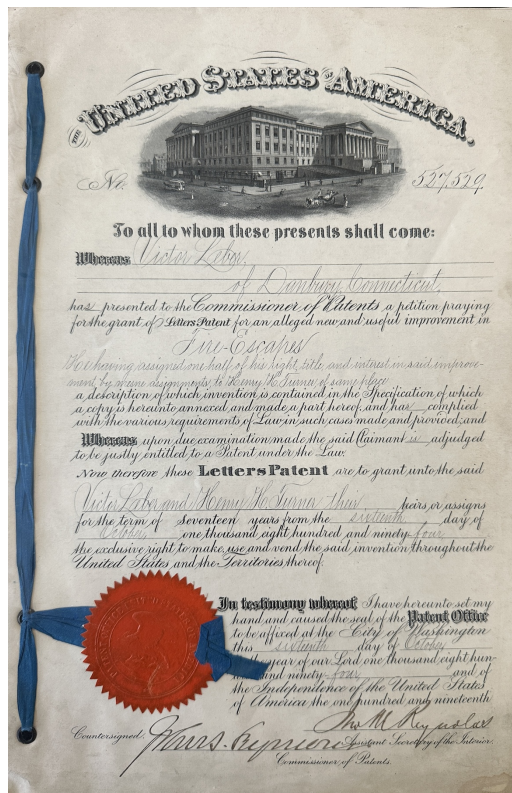 THE UNITED STATES OF AMERICA.
No. 527,529.
To all to whom these presents shall come:
Whereas Victor Labor,
of Danbury, Connecticut,
has presented to the Commissioner of Patents a petition praying
for the grant of Letters Patent for an alleged new and useful improvement in
Fire-Escapes
He having assigned one half of his right, title, and interest in said improve-
ment, by mesne assignments, to Henry H. Turner, of same place
a description of which invention is contained in the Specification of which
a copy is hereunto annexed and made a part hereof, and has complied
with the various requirements of Law in such cases made and provided, and
Whereas upon due examination made the said Claimant is adjudged
to be justly entitled to a Patent under the Law.
Now therefore these Letters Patent are to grant unto the said
Victor Labor and Henry H. Turner, their heirs or assigns
for the term of Seventeen years from the sixteenth day of
October one thousand eight hundred and ninety-four
the exclusive right to make, use and vend the said invention throughout the
United States and the Territories thereof.
In testimony whereof I have hereunto set my
hand and caused the seal of the Patent Office
to be affixed at the City of Washington
this sixteenth day of October
year of our Lord one thousand eight hun-
and ninety-four and of
the Independence of the United States
of America the one hundred and nineteenth
Jno. M. Reynolds
Countersigned.
Assistant Secretary of the Interior.
Commissioner of Patents.